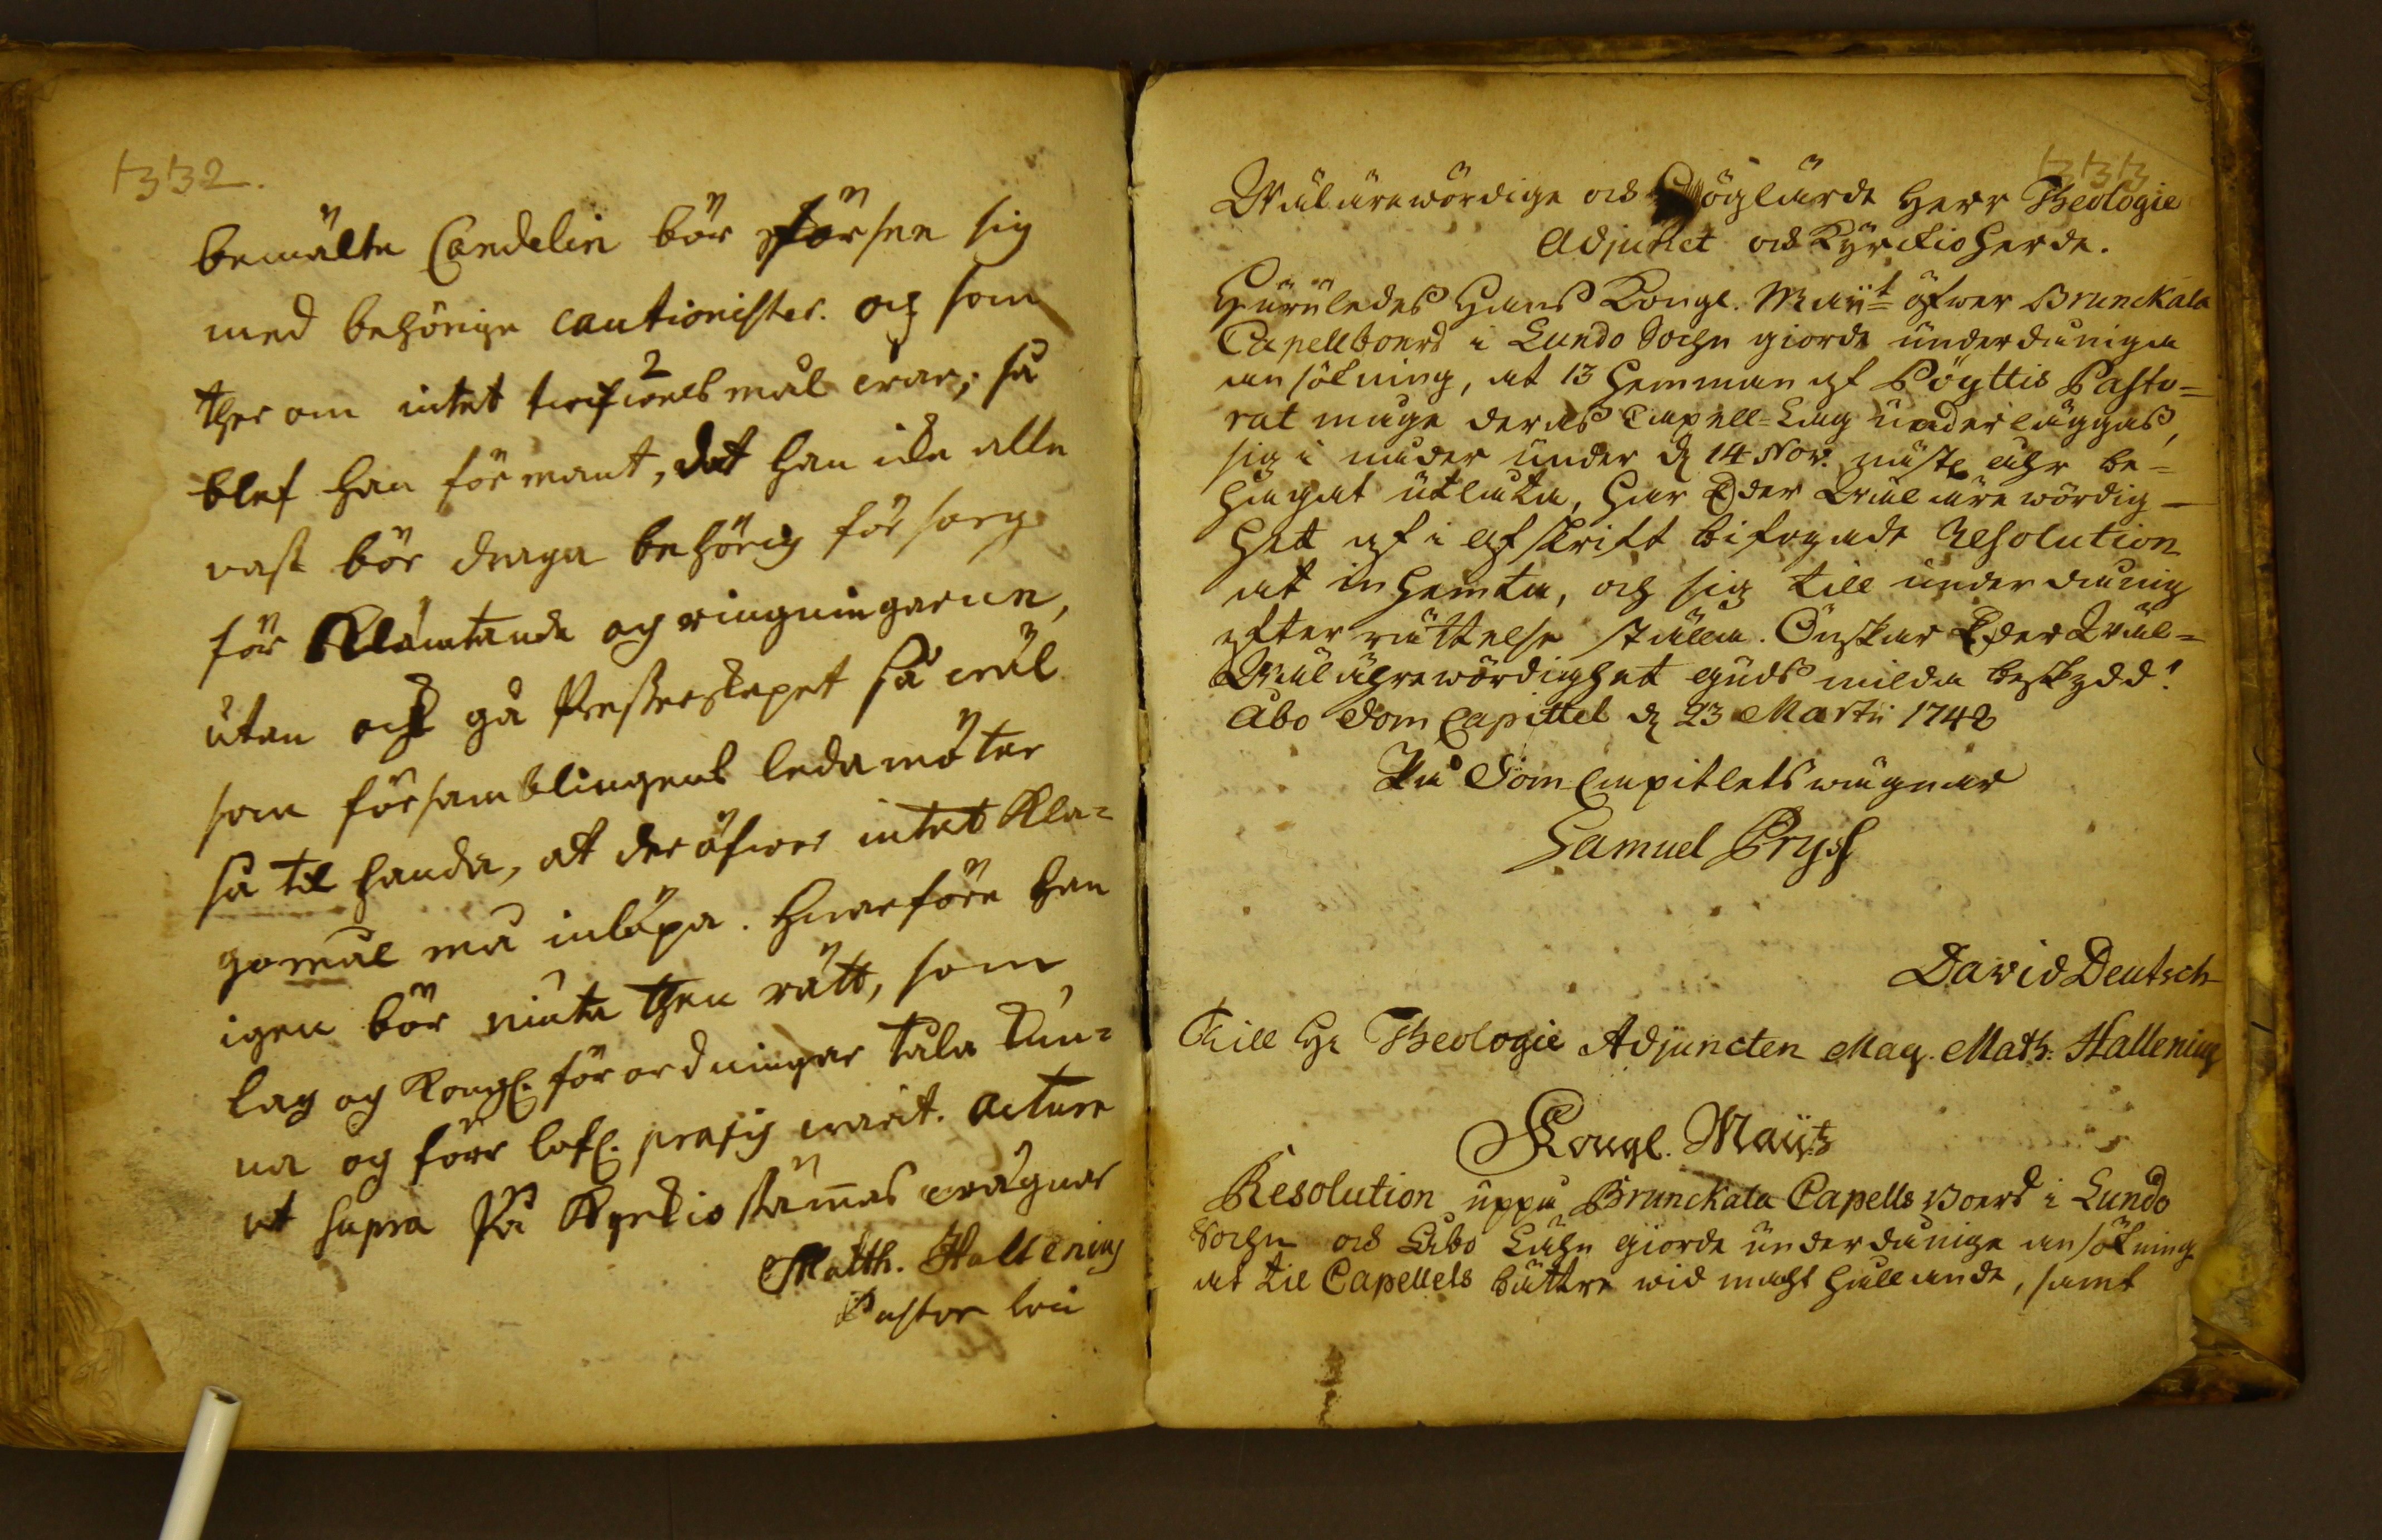 1332.
bemälte Candelin bör förse sig
med behörige cautionister. och som
ther om intet twifwels mål war; så
blef han förmant, det han icke allenast bör draga behörig försorg
för Klämtande och ringningarne,
utan ock gå Presterskapet så wäl
som församblingens ledamöter
så til handa, at der öfwer intet Kla=
gomål må inlöpa. Hwarföre han
igen bör niuta then rätt, som
lag och Kongl. förordningar tala kun=
na och förr lofl. praxis warit. Actum
ut supra På Kyrkiostämnas wägnar
Matth. Hallenius
Pastor loci
1333
Wälärewördige och Höglärde Herr Theologie
Adjunct och Kyrckioherde.
Huruledes Hans Kongl. Maijt öfwer Brunckala
Capellboers i Lundo Sochn giorde underdåniga
ansökning, at 13 Hemman af Pöyttis Pasto=
rat måge deras Capell=Lag underläggas,
sig i nåder under d 14 Nov. näste åhr be=
hagat utlåta, har Eder Wälärewördig-
het af i afskrift bifogade Resolution
at inhemta, och sig till underdånig
efterrättelse ställa. Önskar Eder Wäl=
Wälährewördighet Guds milda beskydd!
Åbo DomCapittel d 23 Martii 1748
På Dom-Capitlets wägnar
Samuel Pryss
David Deutsch
Till Hr Theologie Adjuncten Mag. Math: Hallenius
Kongl. Maijtz
Resolution uppå Brunckala Capells Boers i Lundo
Sochn och Åbo Lähn giorde underdånige ansökning
at til Capellets bättre wid macht hållande, samt